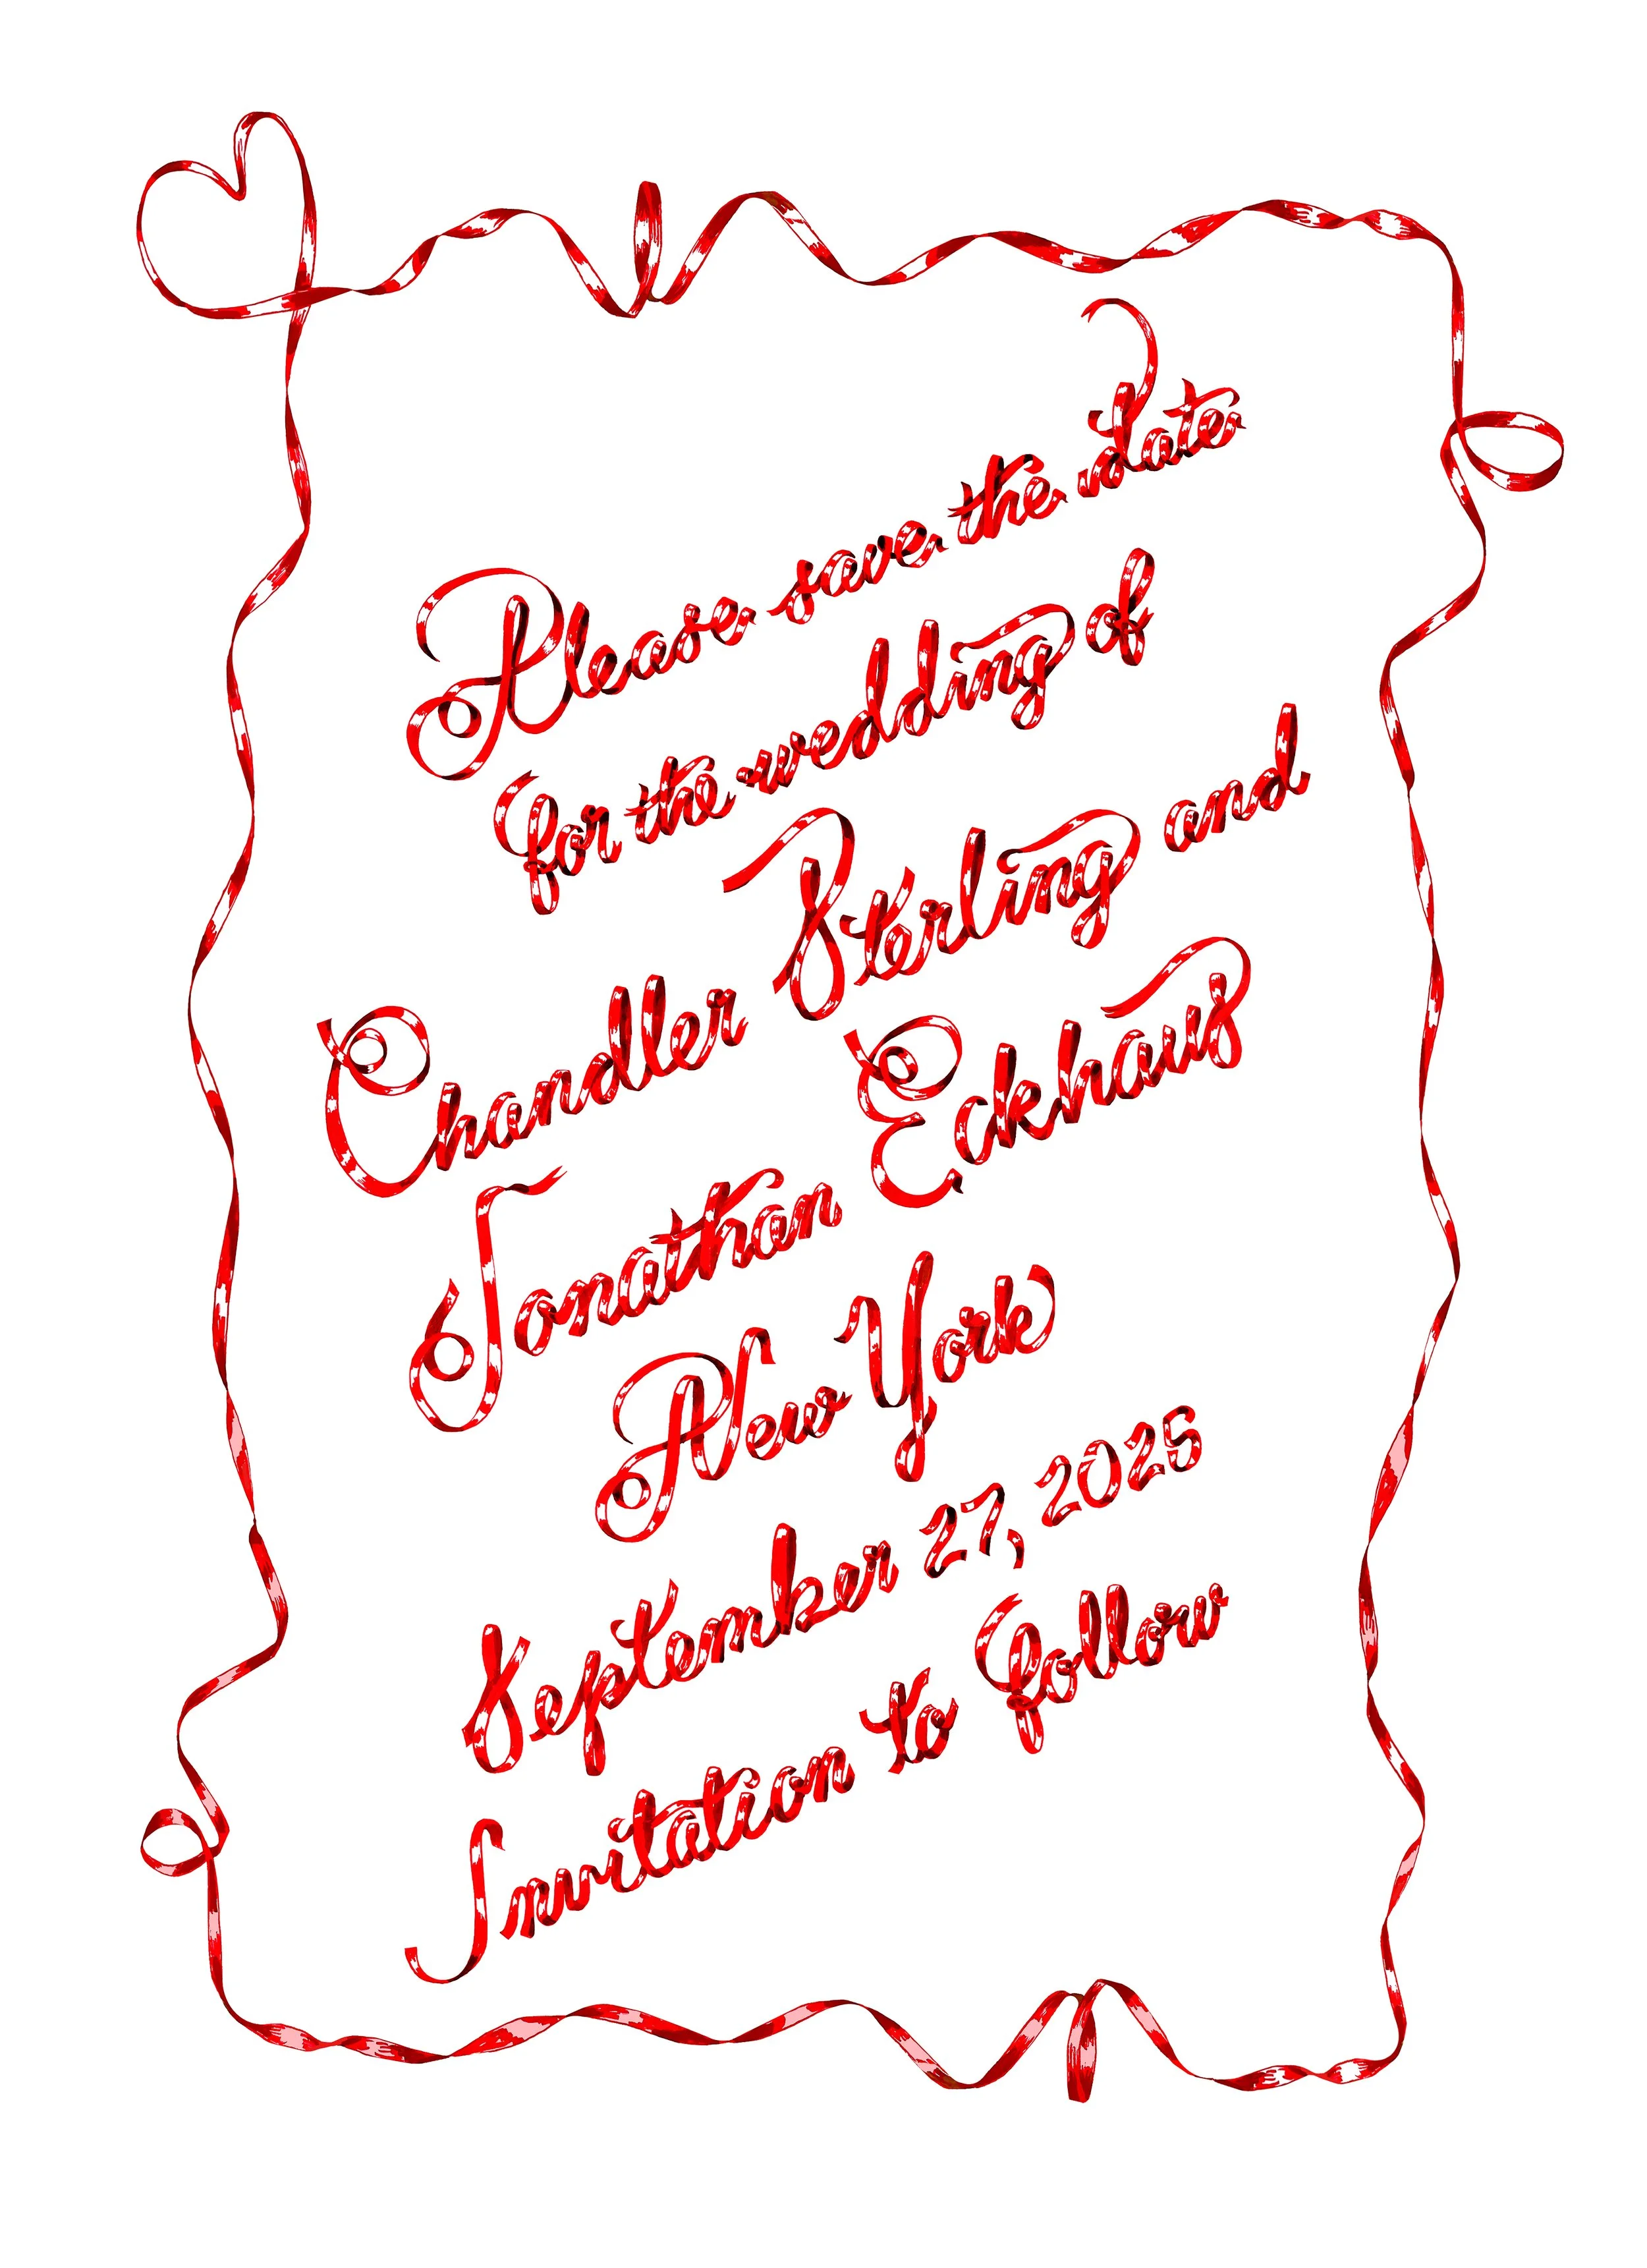 Please save the date
for the wedding of
Chandler Sterling and
Jonathan Eckhaus
New York
September 27, 2025
Invitation to follow